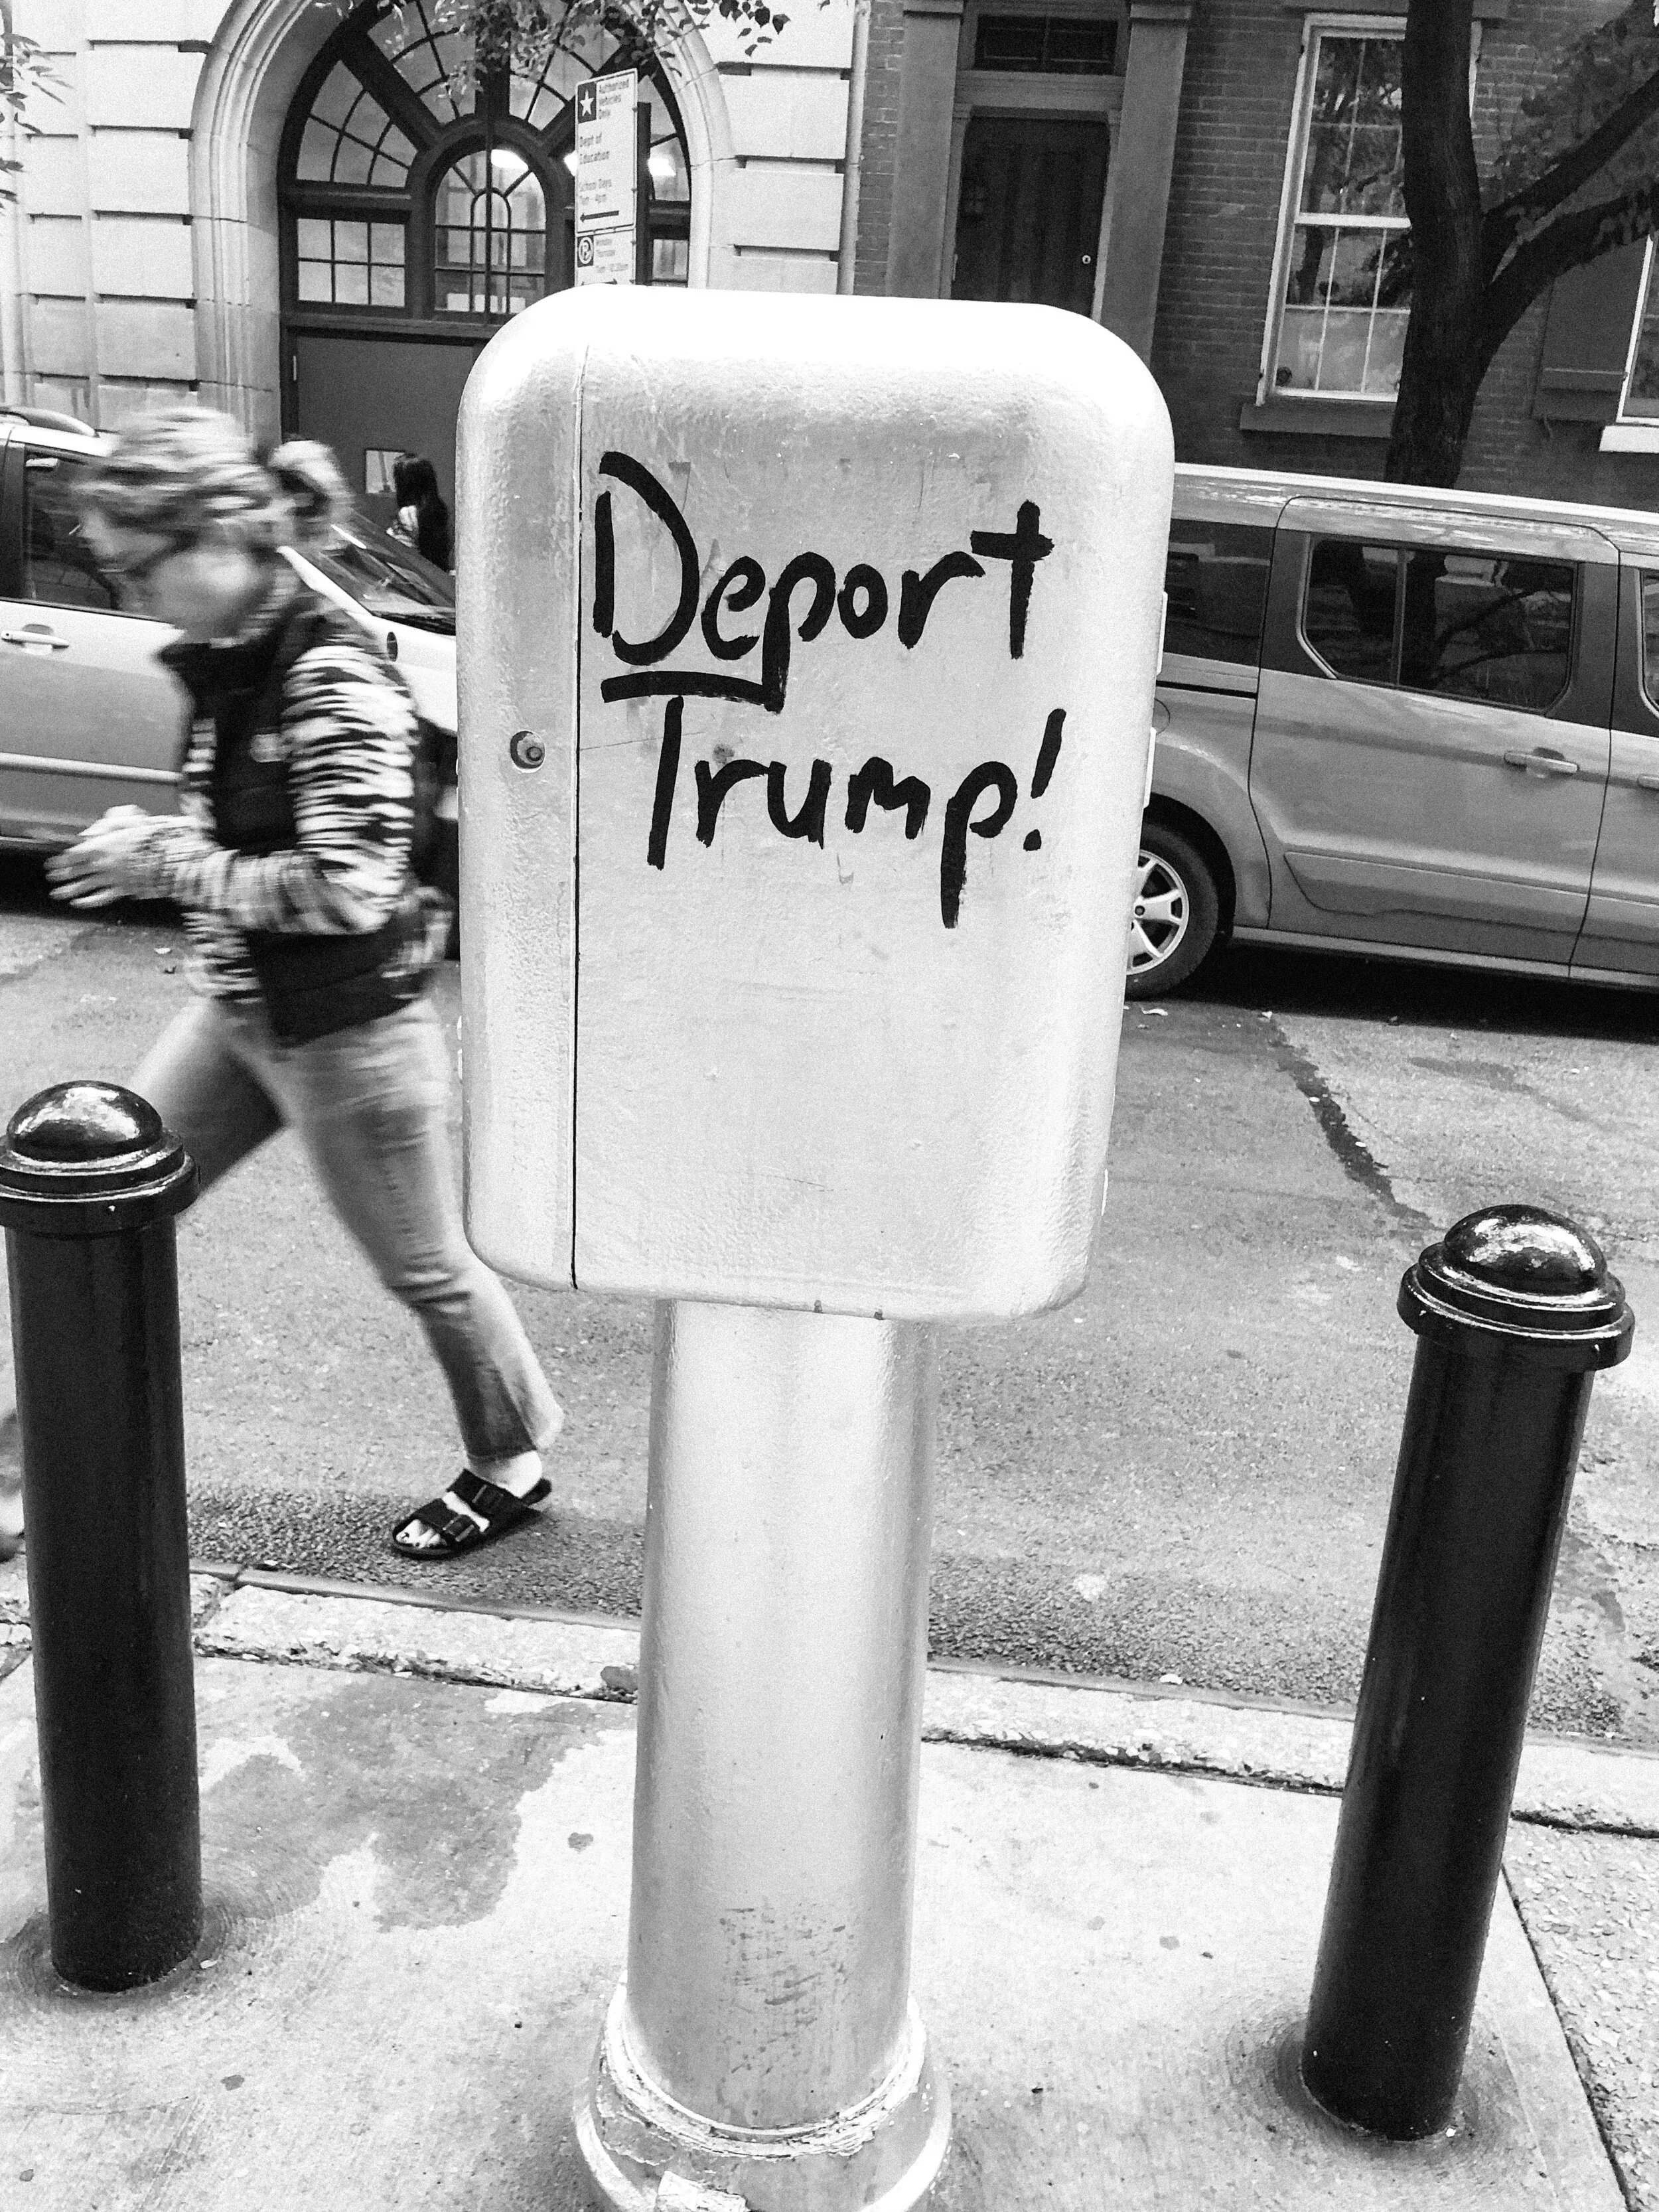 Authorized
Vehicles
Only
Dept of
Education
School Days
7am - 4pm
Deport
Trump!